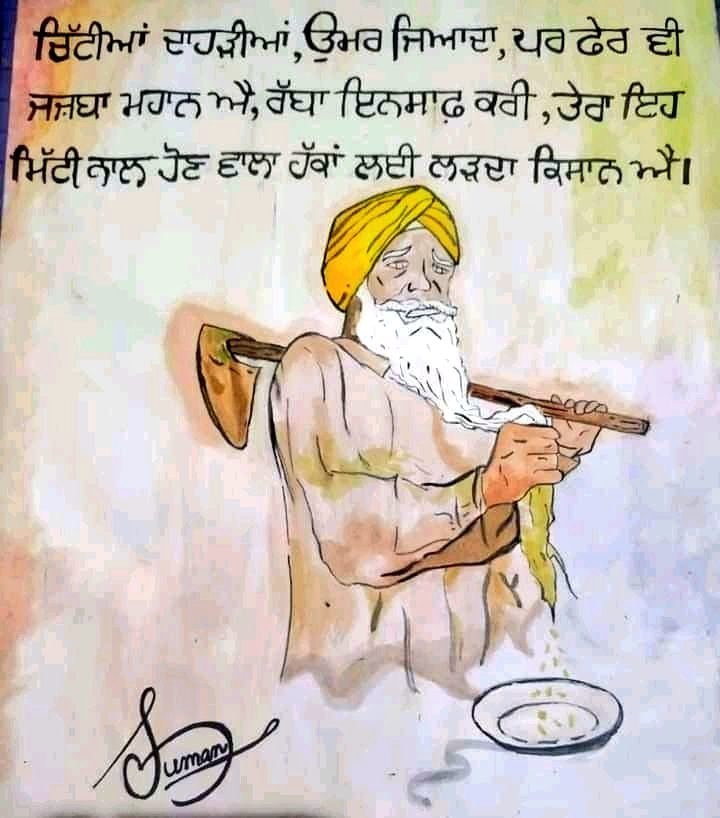 ਚਿੱਟੀਆਂ ਦਾਹੜੀਆਂ, ਉਮਰ ਜਿਆਦਾ, ਪਰ ਫੇਰ ਵੀ
ਜਜ਼ਬਾ ਮਹਾਨ ਐ, ਰੱਬਾ ਇਨਸਾਫ਼ ਕਰੀ, ਤੇਰਾ ਇਹ
ਮਿੱਟੀ ਨਾਲ ਹੋਣ ਵਾਲਾ ਹੱਕਾਂ ਲਈ ਲੜਦਾ ਕਿਸਾਨ ਐ।
Suman